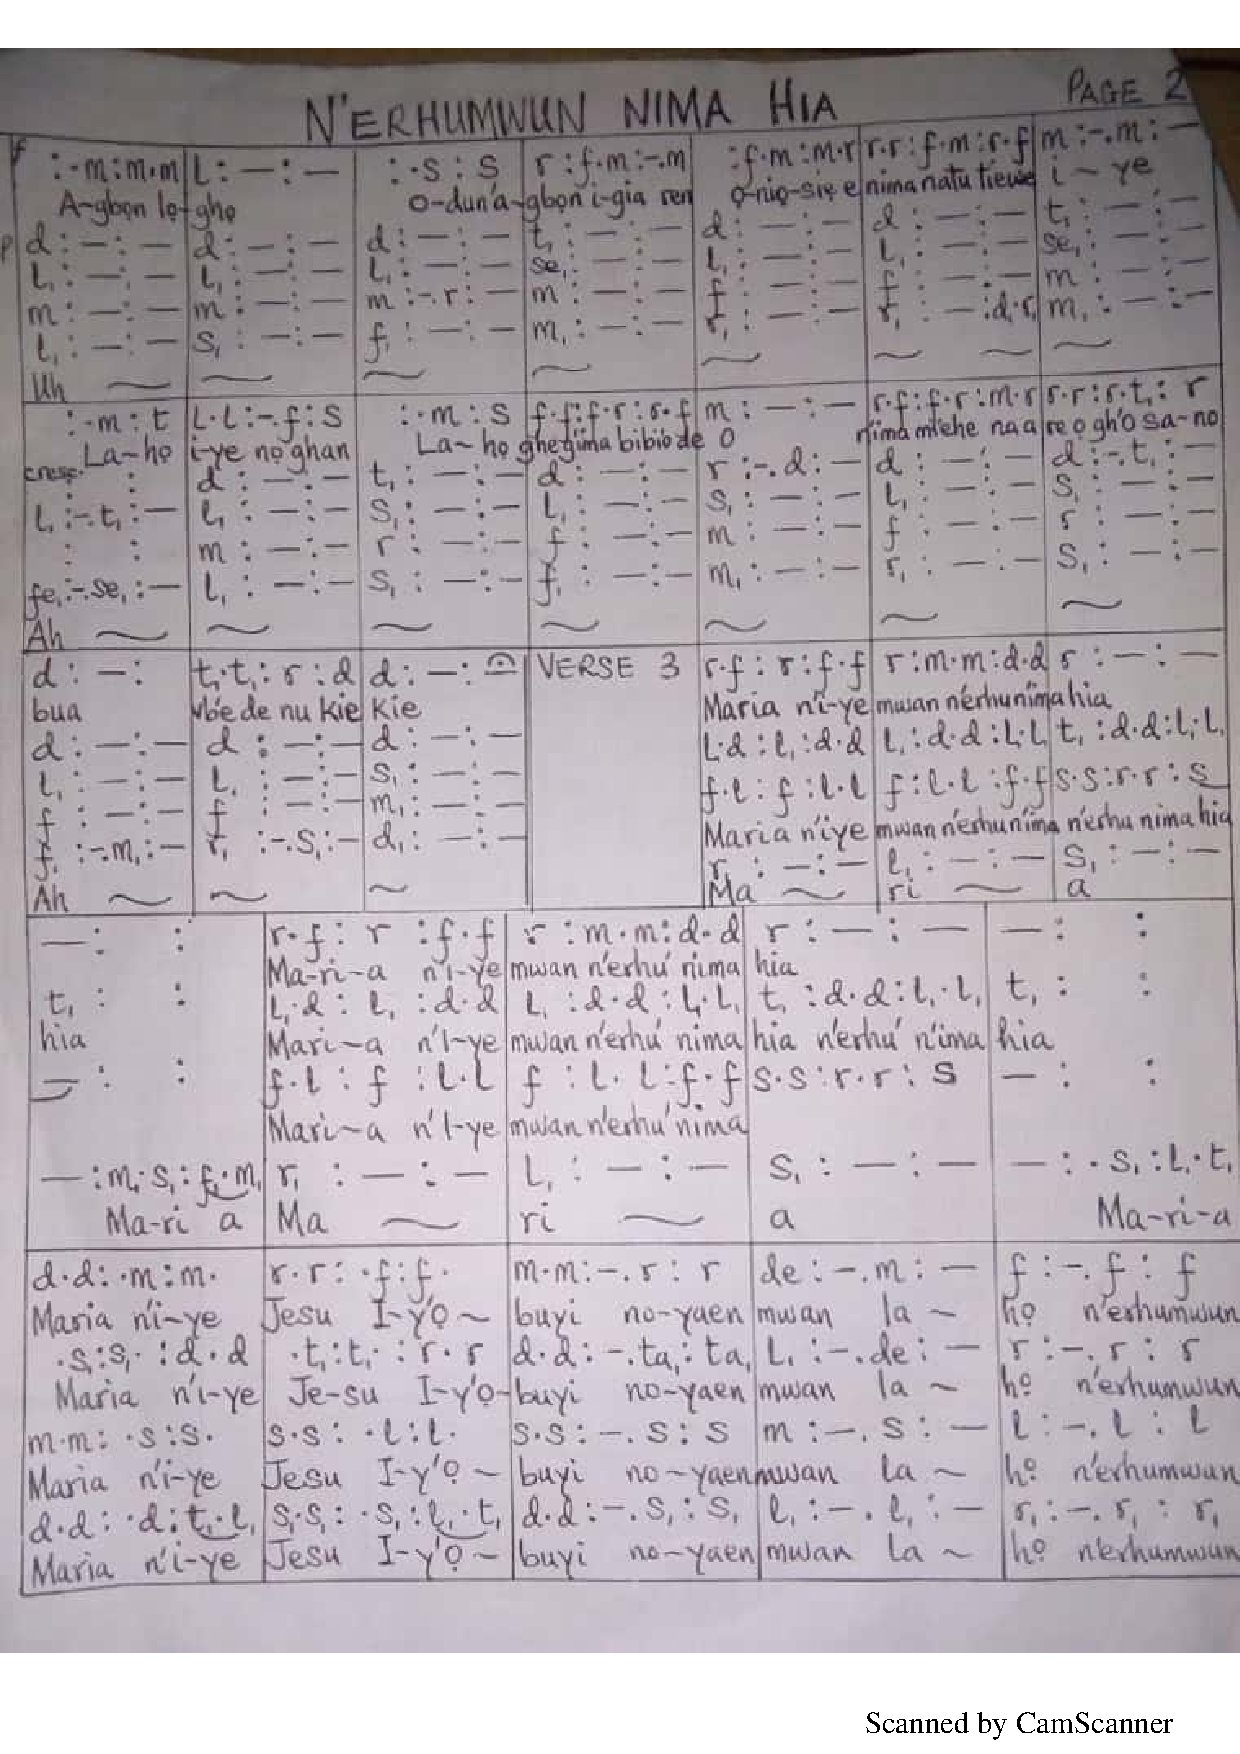 N'ERHUMWUN NIMA HIA
PAGE 2
f
:·m:m·m | L:—:— | :·s:s | r:f·m:-.m | :f·m:m·r | r·r:f·m:r·f | m:-.m:—
A-gbọn lọ-ghọ o-dun'a-gbọn i-gia ren ọ-niọ-siẹ e nima natu tiewe i ~ ye
p d:—:— | d:—:— | d:—:— | t₁:—:— | d:—:— | d:—:— | t₁:—:—
L₁:—:— | L₁:—:— | L₁:—:— | se₁:—:— | L₁:—:— | L₁:—:— | se₁:—:—
m:—:— | m:—:— | m:-.r:— | m:—:— | f:—:— | f:—:— | m:—:—
L₁:—:— | s₁:—:— | f₁:—:— | m₁:—:— | r₁:—:— | r₁:—:d·r₁ | m₁:—:—
Uh
:·m:t | L·L:-.f:s | :·m:s | f·f:f·r:r·f | m:—:— | r·f:f·r:m·r | r·r:r·t₁:r
La-họ i-ye nọ ghan La-họ ghegima bibiọ de O nima m'ehe na a re ọ gh'O sa-no
cresc. : : | d:—:— | t₁:—:— | d:—:— | r:-.d:— | d:—:— | d:-.t₁:—
L₁:-.t₁:— | L₁:—:— | s₁:—:— | L₁:—:— | s₁:—:— | L₁:—:— | s₁:—:—
: : | m:—:— | r:—:— | f:—:— | m:—:— | f:—:— | r:—:—
fe₁:-.se₁:— | L₁:—:— | s₁:—:— | f₁:—:— | m₁:—:— | r₁:—:— | s₁:—:—
Ah
d:—: | t₁·t₁:r:d | d:—: | VERSE 3 | r·f:r:f·f | r:m·m:d·d | r:—:—
bua vbe de nu kie kie Maria n'i-ye mwan n'erhu nima hia
d:—:— | d:—:— | d:—:— | L·d:L₁:d·d | L₁:d·d:L₁·L₁ | t₁:d·d:L₁·L₁
L₁:—:— | L₁:—:— | s₁:—:—
f:—:— | f:—:— | m₁:—:— | f·l:f:l·l | f:l·l:f·f | s·s:r·r:s
Maria n'iye mwan n'erhu nima n'erhu nima hia
f₁:-.m₁:— | r₁:-.s₁:— | d₁:—:— | r₁:—:— | L₁:—:— | s₁:—:—
Ah Ma ri a
—: : | r·f:r:f·f | r:m·m:d·d | r:—:— | —: :
Ma-ri-a n'i-ye mwan n'erhu' nima hia
t₁: : | L₁·d:L₁:d·d | L₁:d·d:L₁·L₁ | t₁:d·d:L₁·L₁ | t₁: :
hia Mari-a n'I-ye mwan n'erhu' nima hia n'erhu' n'ima hia
—: : | f·l:f:l·l | f:l·l:f·f | s·s:r·r:s | —: :
Mari-a n'I-ye mwan n'erhu' nima
—:m₁·s₁:f₁·m₁ | r₁:—:— | L₁:—:— | s₁:—:— | —:·s₁:L₁·t₁
Ma-ri a Ma ri a Ma-ri-a
d·d:·m:m· | r·r:·f:f· | m·m:-.r:r | de:-.m:— | f:-.f:f
Maria n'i-ye Jesu I-y'Ọ ~ buyi no-yaen mwan la ~ họ n'erhumwun
·s₁:s₁·:d·d | ·t₁:t₁·:r·r | d·d:-.ta₁:ta₁ | L₁:-.de:— | r:-.r:r
Maria n'i-ye Je-su I-y'Ọ-buyi no-yaen mwan la ~ họ n'erhumwun
m·m:·s:s· | s·s:·l:l· | s·s:-.s:s | m:-.s:— | l:-.l:l
Maria n'i-ye Jesu I-y'Ọ ~ buyi no-yaen mwan la ~ họ n'erhumwun
d·d:·d:t₁·L₁ | s₁·s₁:·s₁:L₁·t₁ | d·d:-.s₁:s₁ | L₁:-.L₁:— | r₁:-.r₁:r₁
Maria n'i-ye Jesu I-y'Ọ ~ buyi no-yaen mwan la ~ họ n'erhumwun
Scanned by CamScanner